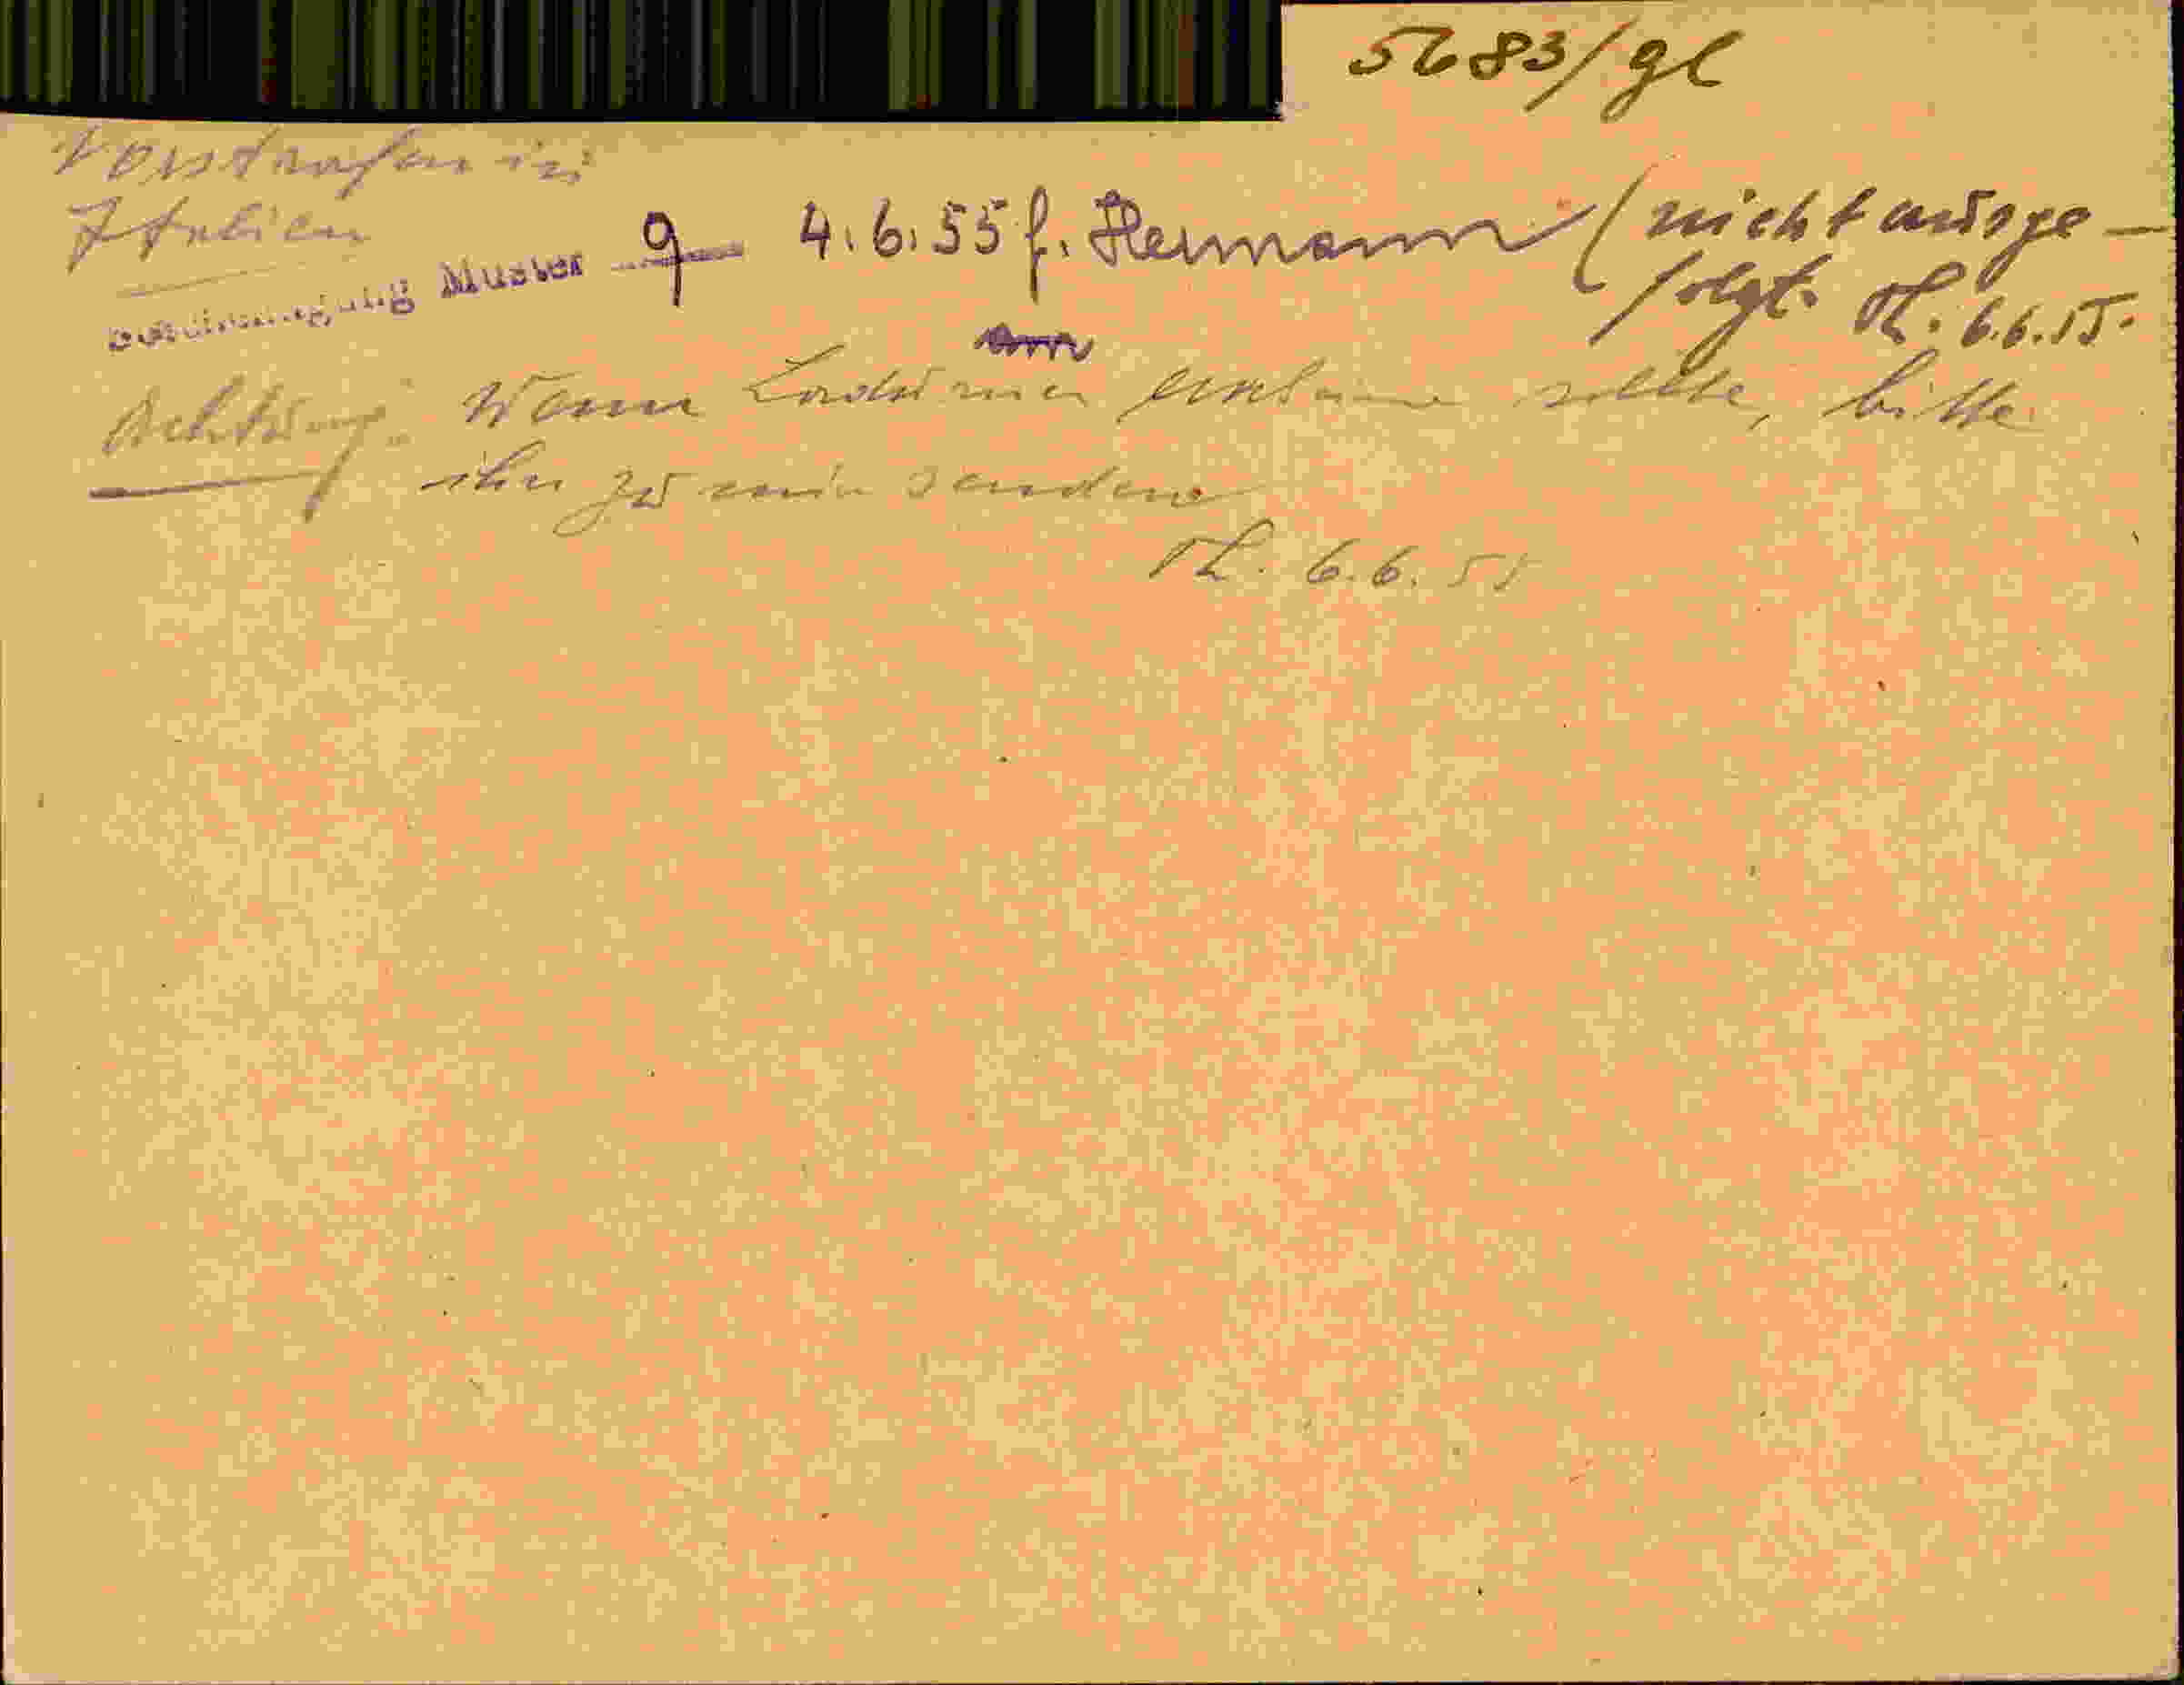 5683/gl
Vorstrafen in
Italien
Bescheinigung Muster 9 4.6.55 f. Hermann (nicht ausge-
folgt. 6.6.55.
Achtung! Wenn sollte, bitte
ihn zu mir senden
6.6.55